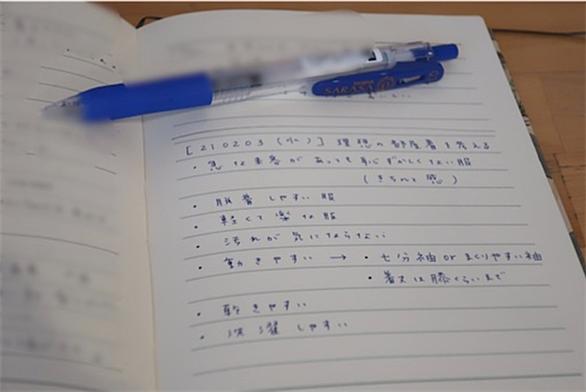 SARASA
[210203(水)] 理想の部屋着を考える
・急な来客があっても恥ずかしくない服
(きちんと感)
・脱着しやすい服
・軽くて楽な服
・汚れが気にならない
・動きやすい → ・七分袖 or まくりやすい袖
・着丈は膝くらいまで
・乾きやすい
・洗濯しやすい